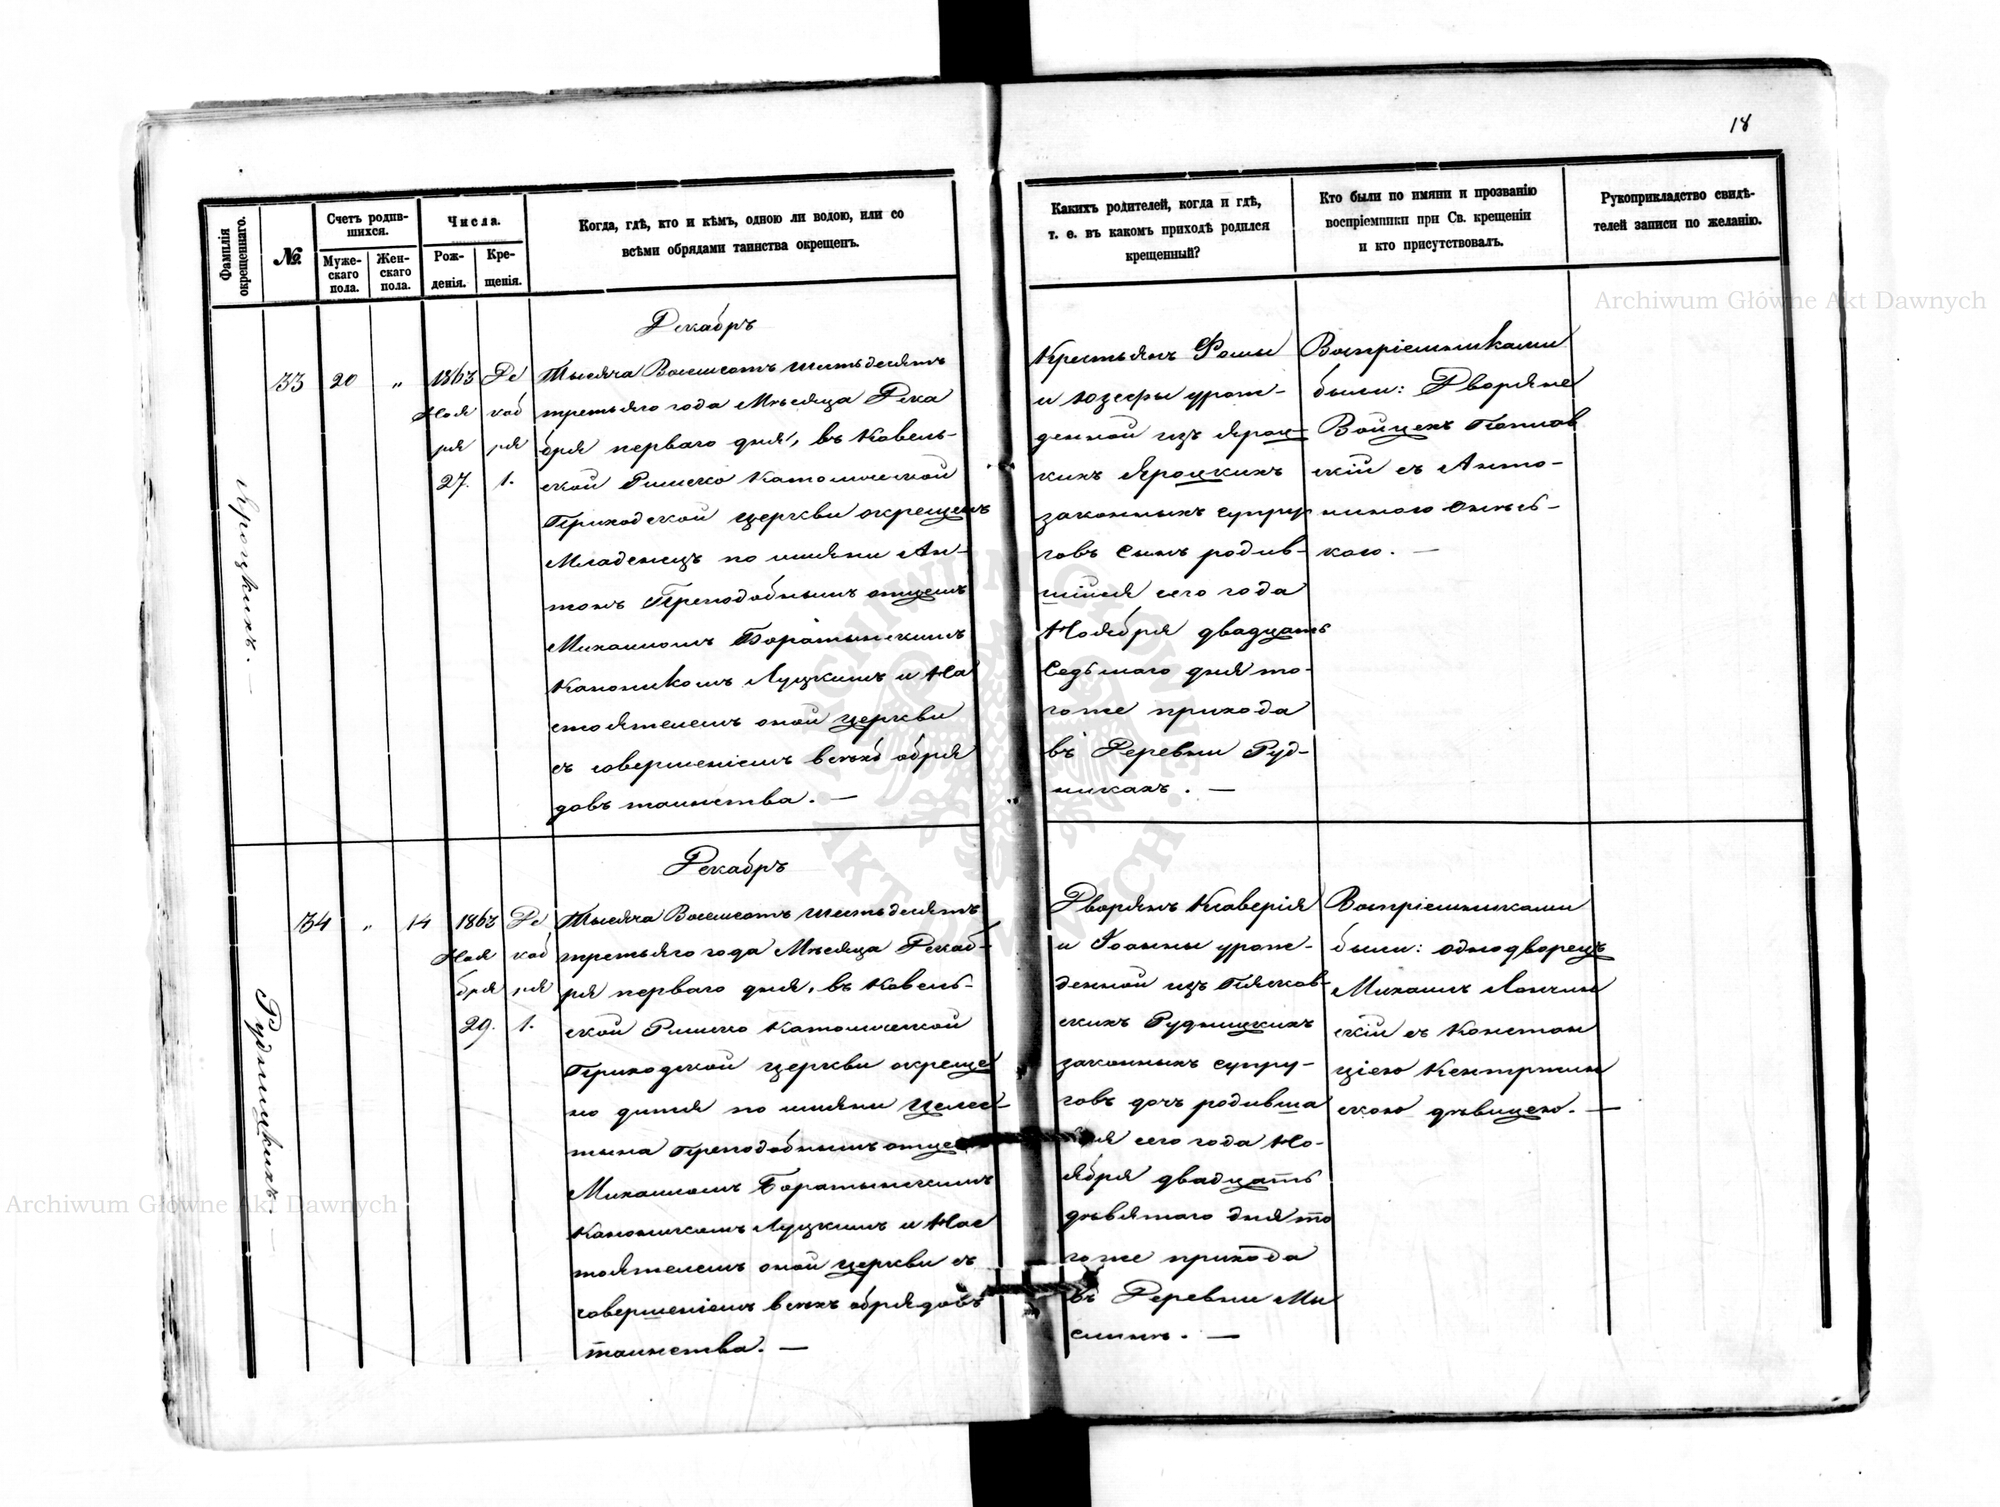 18
Фамилія
окрещеннаго.
№.
Счетъ родив-
шихся.
Муже-
скаго
пола.
Жен-
скаго
пола.
Числа.
Рож-
денія.
Кре-
щенія.
Когда, гдѣ, кто и кѣмъ, одною ли водою, или со
всѣми обрядами таинства окрещенъ.
Какихъ родителей, когда и гдѣ,
т. е. въ какомъ приходѣ родился
крещенный?
Кто были по имяни и прозванію
воспріемники при Св. крещеніи
и кто присутствовалъ.
Рукоприкладство свидѣ-
телей записи по желанію.
Яроцкихъ. —
33
20
„
1863
Ноя
ря
27.
Де
каб
ря
1.
Декабрь
Тысяча Восемсотъ шестьдесятъ
третьяго года Мѣсяца Дека
бря перваго дня, въ Ковель-
ской Римско Католической
Приходской церкви окрещенъ
Младенецъ по имяни Ан-
тонъ Преподобнымъ отцемъ
Михаиломъ Боратынскимъ
Каноникомъ Луцкимъ и На
стоятелемъ оной церкви
съ совершеніемъ всѣхъ обря
довъ таинства. —
Крестьянъ Фомы
и Юзефы урож-
денной изъ Яроц-
кихъ Яроцкихъ
законныхъ супру
говъ сынъ родив-
шійся сего года
Ноября двадцать
седьмаго дня то-
гоже прихода
въ Деревни Руд-
никахъ. —
Воспріемниками
были: Дворяне
Войцехъ Поплав
скій съ Анто-
ниною
кою. —
Рудницкихъ. —
34
„
14
1863
Ноя
бря
29.
Де
каб
ря
1.
Декабрь
Тысяча Восемсотъ шестьдесятъ
третьяго года Мѣсяца Декаб-
ря перваго дня, въ Ковель-
ской Римско Католической
Приходской церкви окреще
но дитя по имяни Целес-
тына Преподобнымъ отце
Михаиломъ Боратынскимъ
Каноникомъ Луцкимъ и Нас
тоятелемъ оной церкви съ
совершеніемъ всѣхъ обрядовъ
таинства. —
Дворянъ Ксаверія
и Іоанны урож-
денной изъ Пясков-
скихъ Рудницкихъ
законныхъ супру-
говъ дочь родивша
яся сего года Но-
ября двадцать
девятаго дня то
гоже прихода
въ Деревни Мы
слинѣ. —
Воспріемниками
были: однодворецъ
Михаилъ Лончин
скій съ Констан
ціею Кентржин
скою дѣвицею. —
Archiwum Główne Akt Dawnych
Archiwum Główne Akt Dawnych
ARCHIWUM GŁÓWNE AKT DAWNYCH